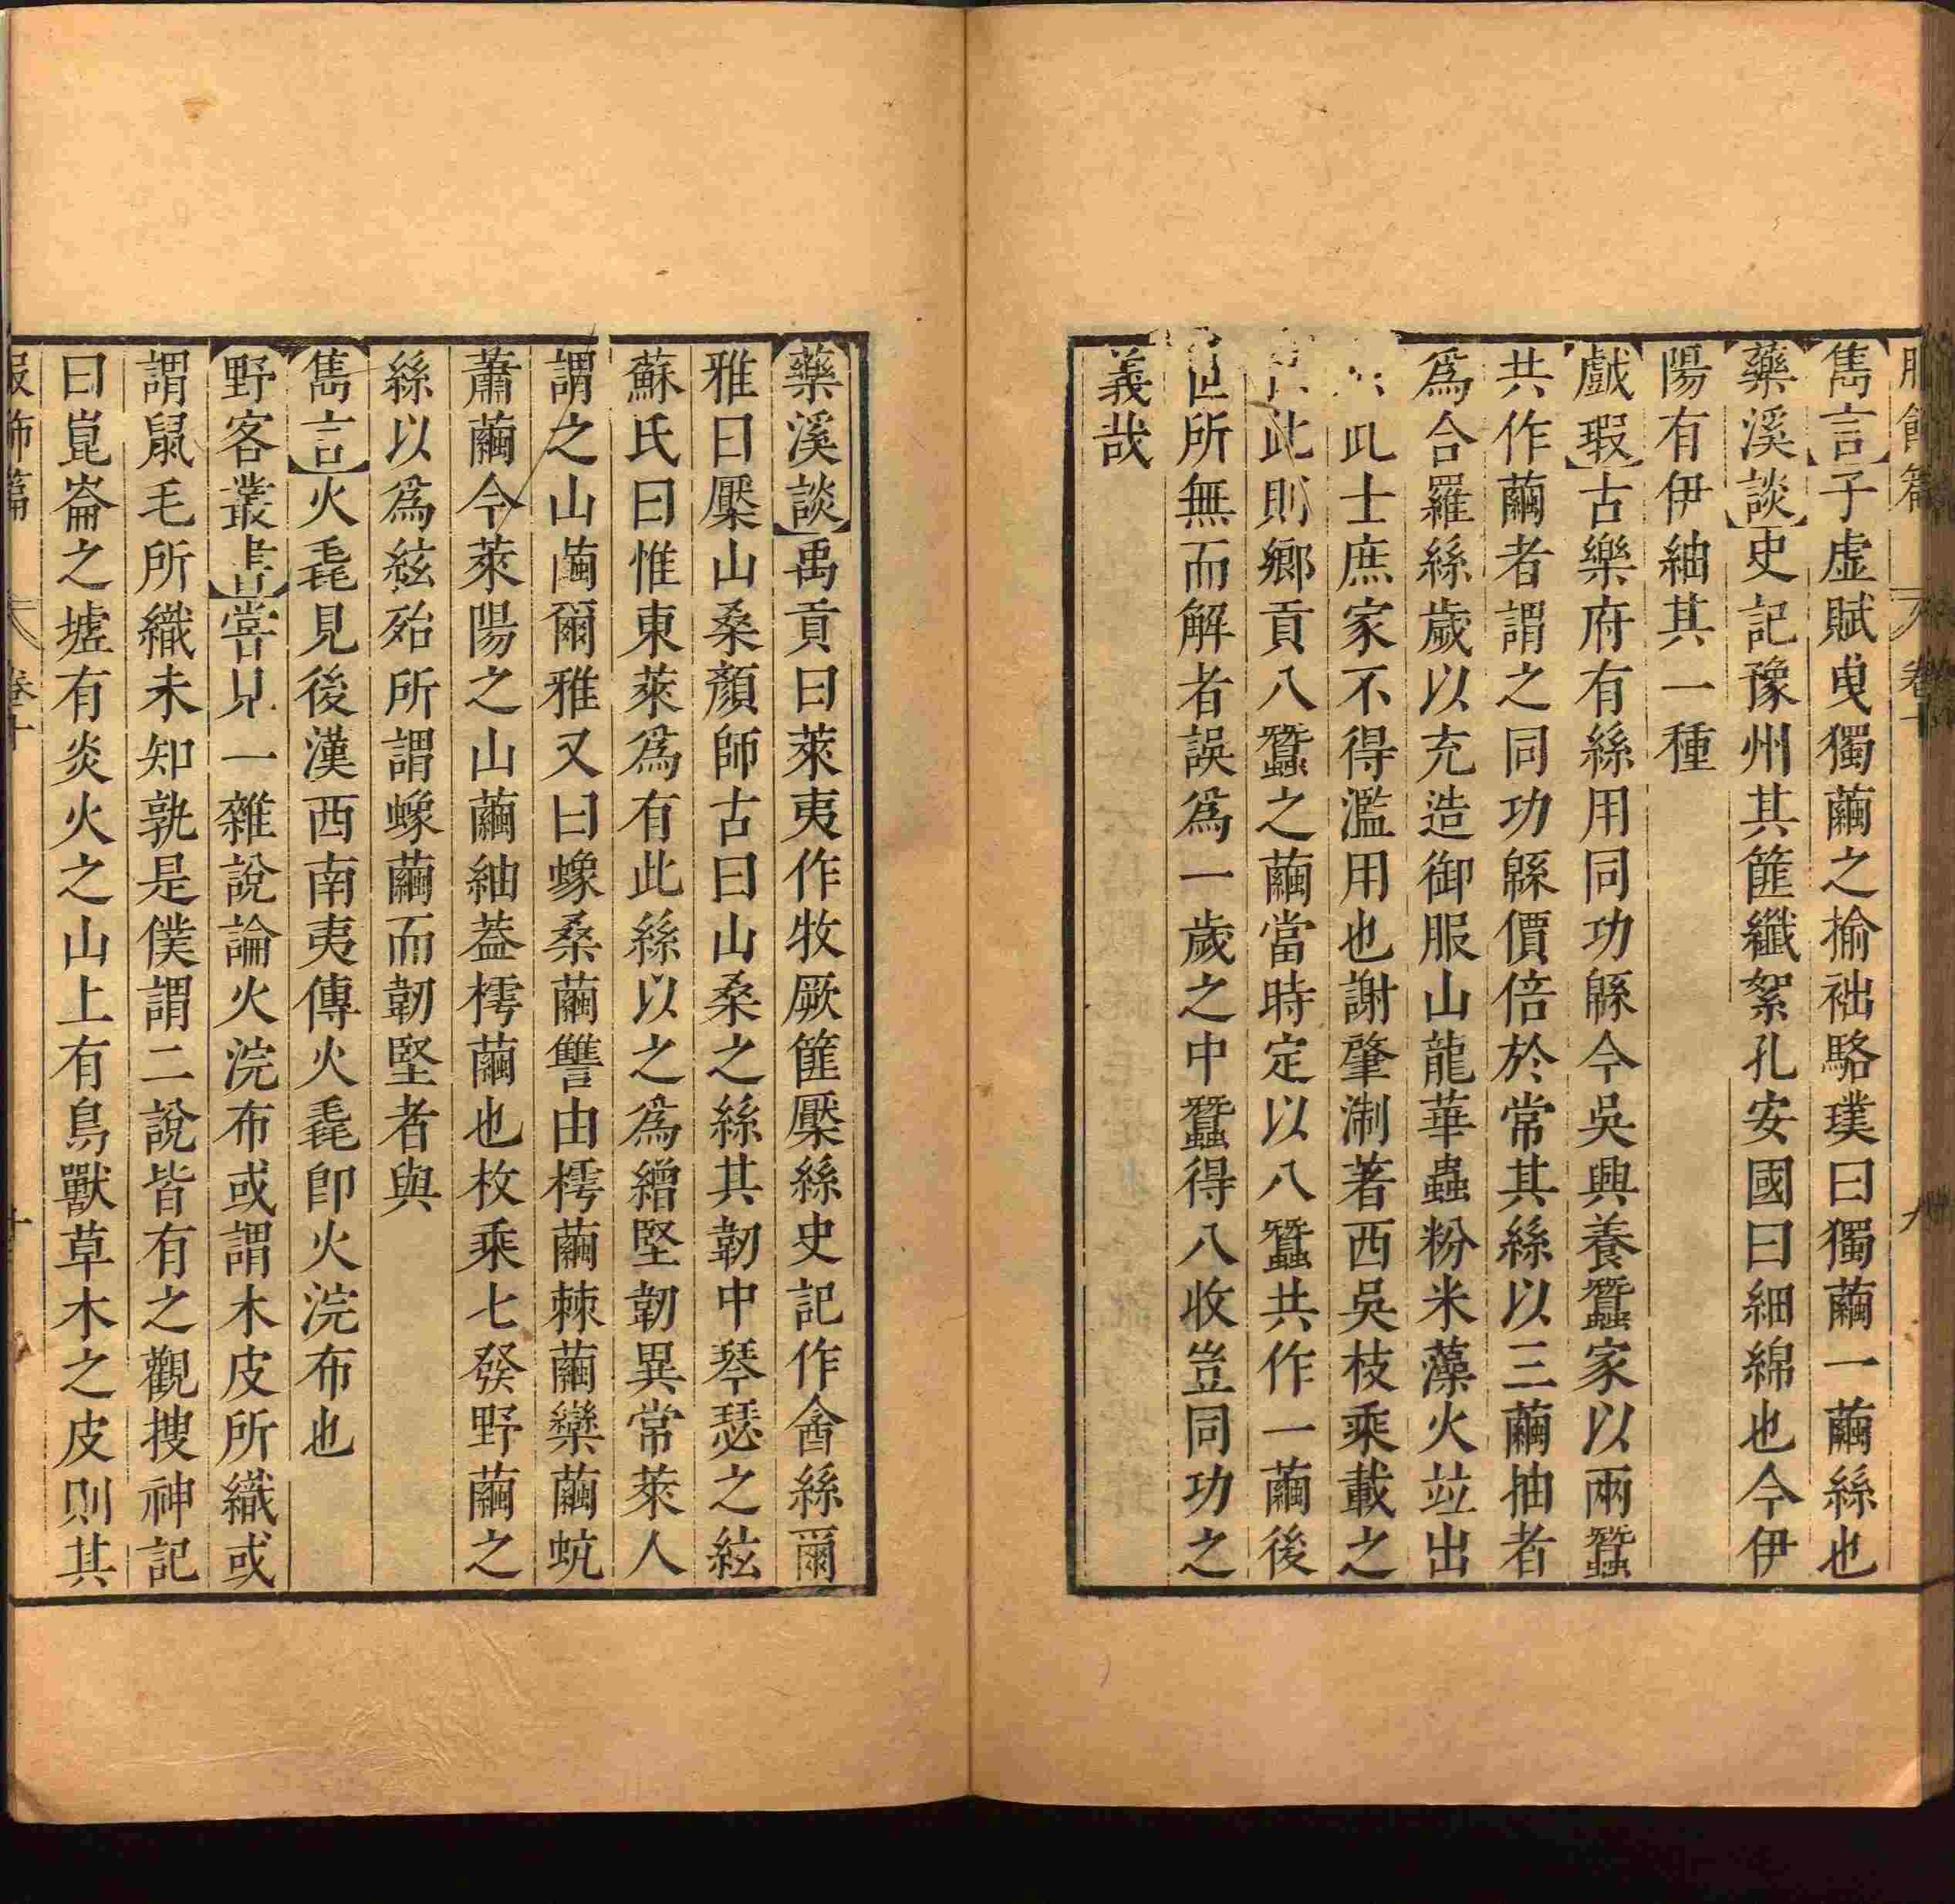 雋言子虛賦曳獨繭之揄袣駱璞曰獨繭一繭絲也
藥溪談史記豫州其篚纖絮孔安國曰細綿也今伊
陽有伊紬其一種
戲瑕古樂府有絲用同功緜今吳興養蠶家以兩蠶
共作繭者謂之同功緜價倍於常其絲以三繭抽者
爲合羅絲歲以充造御服山龍華蟲粉米藻火竝出
此士庶家不得濫用也謝肇淛著西吳枝乘載之
此則鄉貢八蠶之繭當時定以八蠶共作一繭後
世所無而解者誤爲一歲之中蠶得八收豈同功之
義哉
藥溪談禹貢曰萊夷作牧厥篚檿絲史記作酓絲爾
雅曰檿山桑顏師古曰山桑之絲其韌中琴瑟之絃
蘇氏曰惟東萊爲有此絲以之爲繒堅韌異常萊人
謂之山繭爾雅又曰蟓桑繭讐由樗繭棘繭欒繭蚢
蕭繭今萊陽之山繭紬葢樗繭也枚乘七發野繭之
絲以爲絃殆所謂蟓繭而韌堅者與
雋言火毳見後漢西南夷傳火毳卽火浣布也
野客叢書嘗見一雜說論火浣布或謂木皮所織或
謂鼠毛所織未知孰是僕謂二說皆有之觀搜神記
曰崑崙之墟有炎火之山上有鳥獸草木之皮則其
服飾篇 卷十